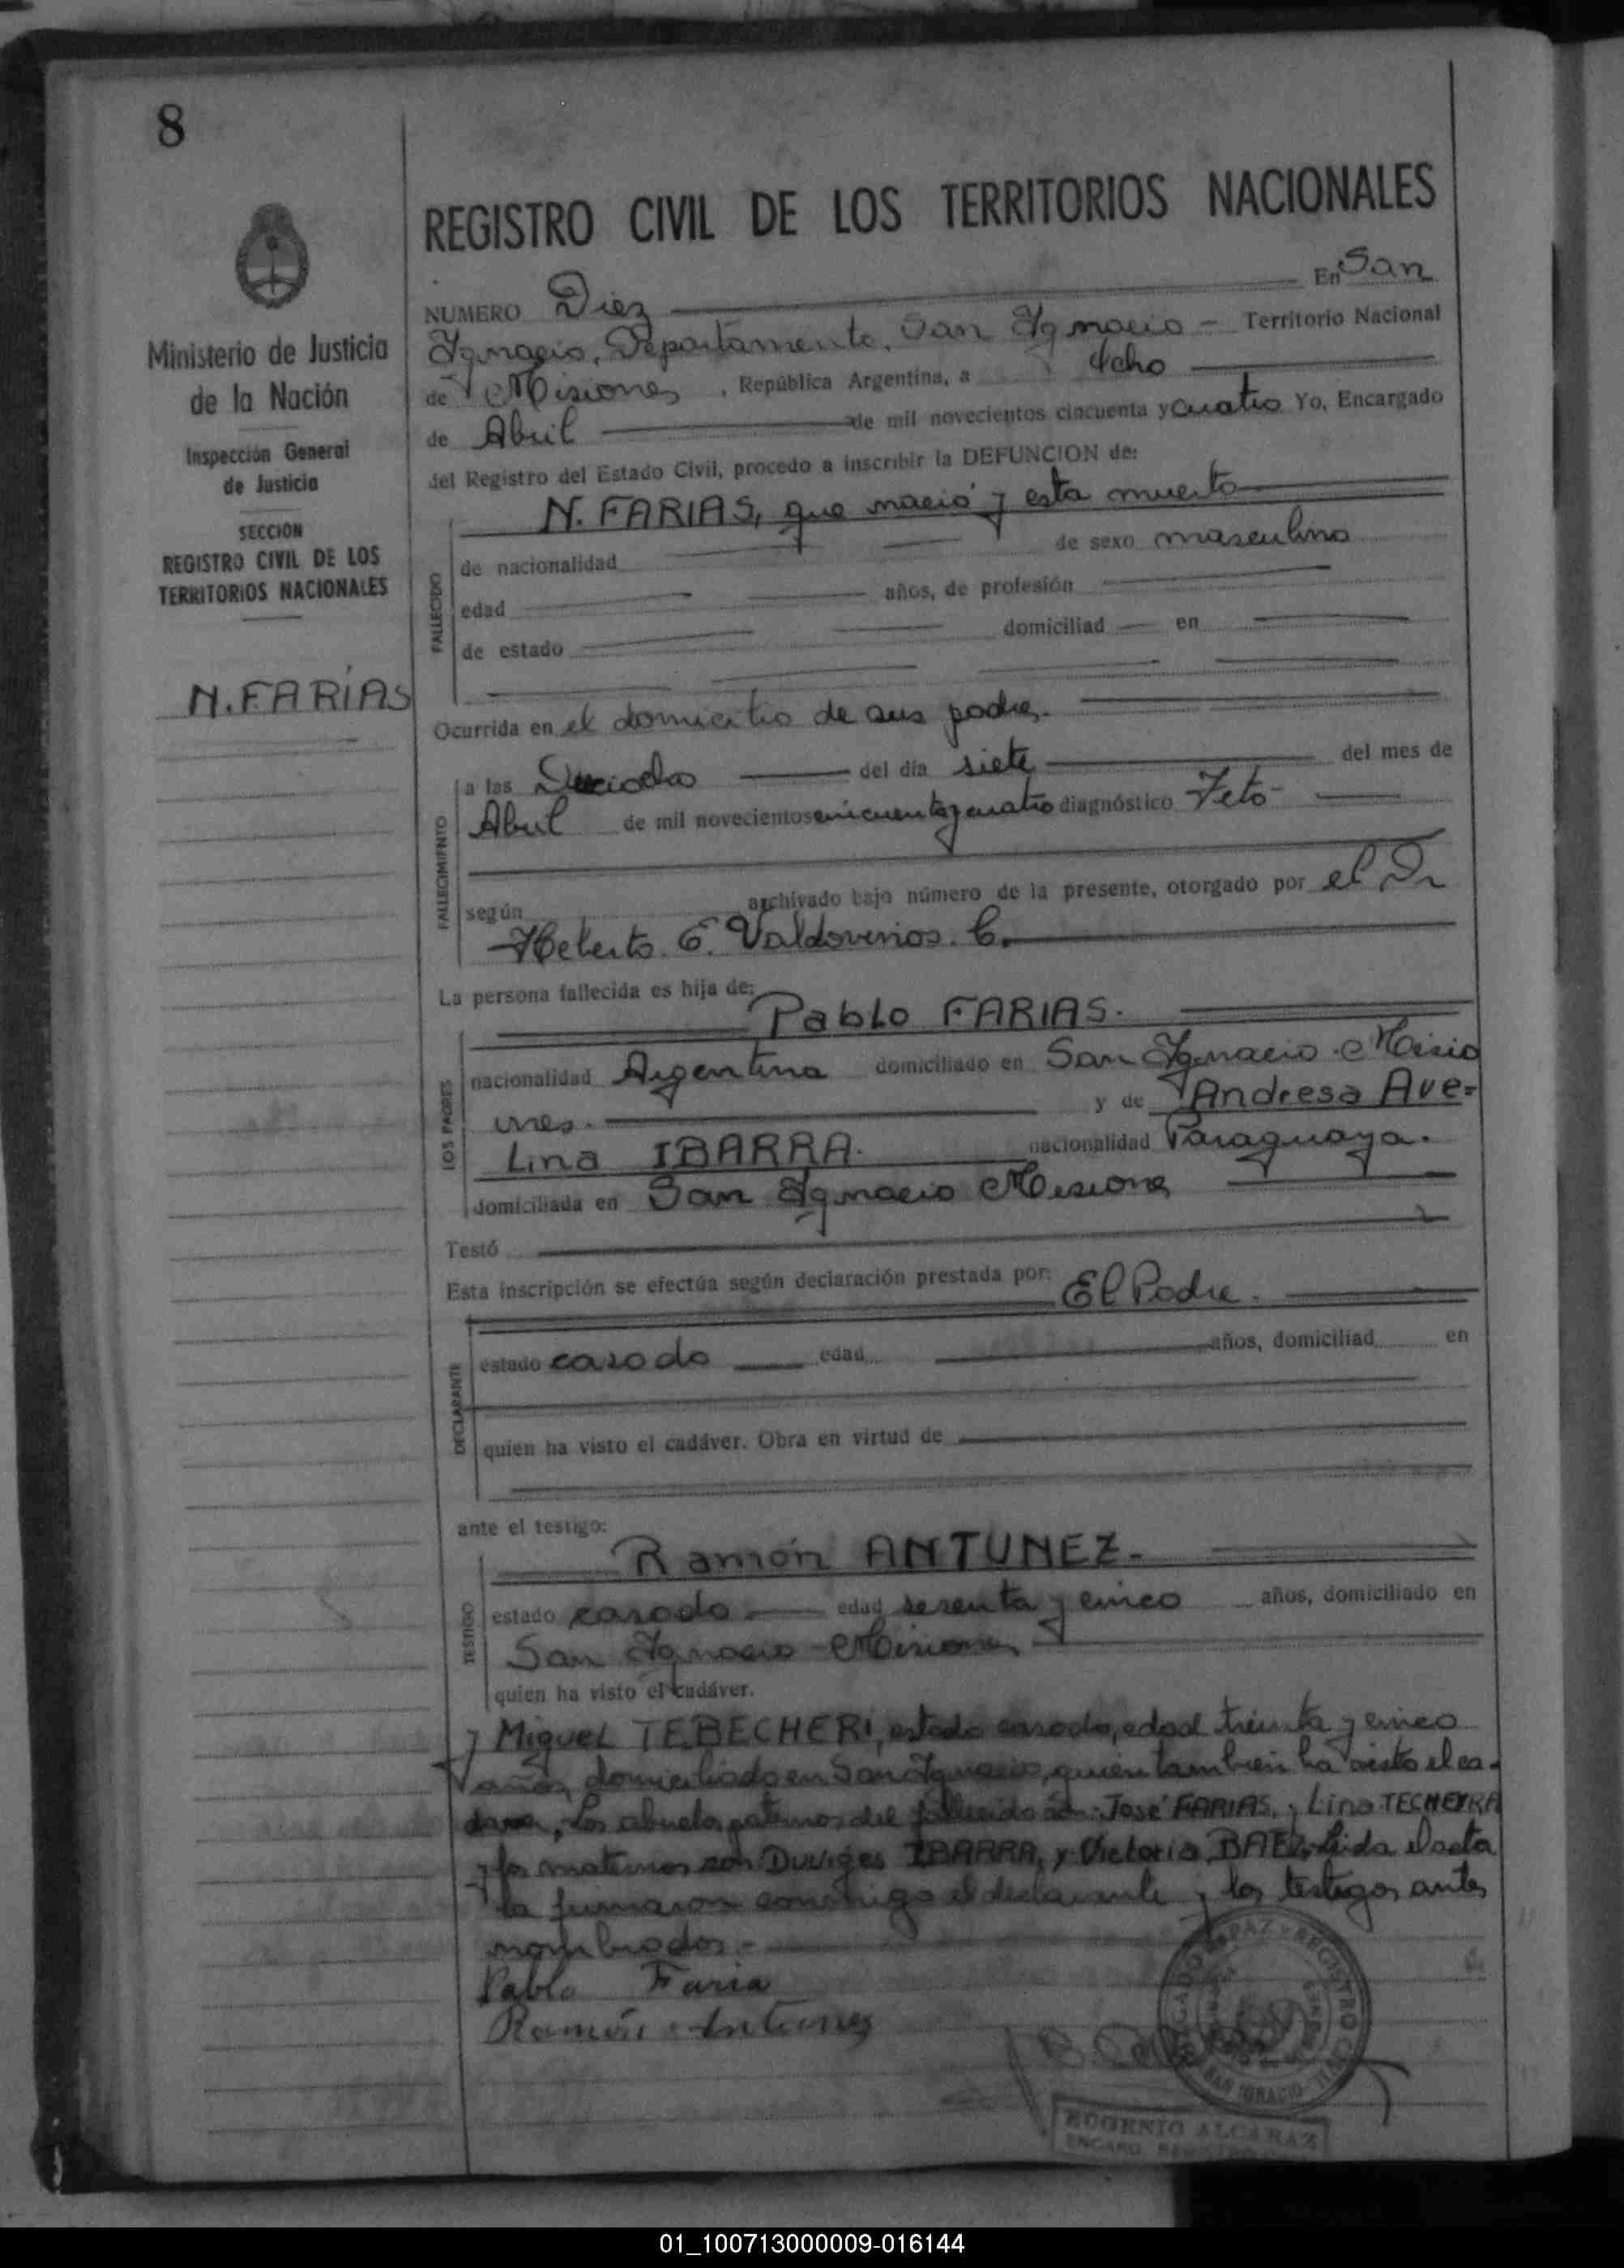 8
REGISTRO CIVIL DE LOS TERRITORIOS NACIONALES
Ministerio de Justicia
de la Nación
Inspección General
de Justicia
SECCION
REGISTRO CIVIL DE LOS
TERRITORIOS NACIONALES
N. FARIAS
NUMERO Diez En San
Ignacio, Departamento, San Ignacio - Territorio Nacional
de Misiones, República Argentina, a Ocho
de Abril de mil novecientos cincuenta y cuatro Yo, Encargado
del Registro del Estado Civil, procedo a inscribir la DEFUNCION de:
N. FARIAS, que nació y esta muerto
FALLECIDO
de nacionalidad de sexo masculino
edad años, de profesión
de estado domiciliad en
Ocurrida en el domicilio de sus padres.
FALLECIMIENTO
a las del día siete del mes de
Abril de mil novecientos cincuenta y cuatro diagnóstico Feto -
según archivado bajo número de la presente, otorgado por el Dr
Heberto E. Valdovinos C.
La persona fallecida es hija de:
Pablo FARIAS.
LOS PADRES
nacionalidad Argentina domiciliado en San Ignacio - Misio
nes. y de Andresa Ave=
Lina IBARRA. nacionalidad Paraguaya.
domiciliada en San Ignacio Misiones
Testó
Esta inscripción se efectúa según declaración prestada por:
El Padre.
DECLARANTE
estado casado edad años, domiciliad en
quien ha visto el cadáver. Obra en virtud de
ante el testigo:
Ramón ANTUNEZ.
TESTIGO
estado casado edad sesenta y cinco años, domiciliado en
San Ignacio - Misiones
quien ha visto el cadáver.
y Miguel TEBECHERI, estado casado, edad treinta y cinco
años, domiciliado en San Ignacio, quien tambien ha visto el ca-
daver, Los abuelos paternos del fallecido son: José FARIAS, y Lina TECHEYRA
y los maternos son Duviges IBARRA, y Victoria BAEZ. Leida el acta
la firmaron conmigo el declarante y los testigos antes
nombrados.-
Pablo Faria
Ramón Antunez
JUZGADO DE PAZ Y REGISTRO CIVIL
SAN IGNACIO
EUGENIO ALCARAZ
ENCARG. REGISTRO
01_100713000009-016144